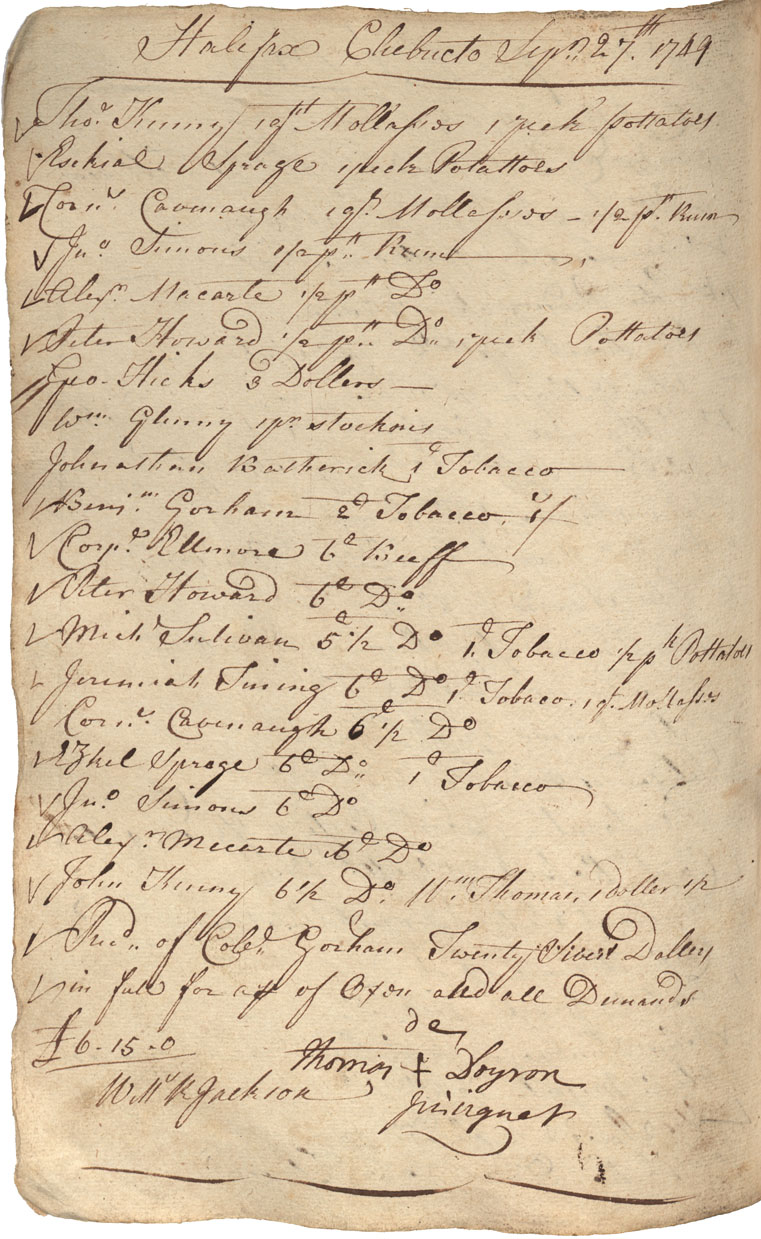 Halifax Chebucto Sepr. 27th. 1749
Thos. Kinny 1 gll Mollasses 1 peck pottatoes
Esekial Sprage 1 peck Potattoes
Corns. Cavenaugh 1 gll. Mollasses – 1/2 pt. Rum
Jno. Simons 1/2 pt. Rum
Alexr. Macarte 1/2 pt Do
Peter Howard 1/2 pt. Do. 1 peck Pottatoes
Geo. Hicks 3 Dollers —
Wm. Glinny 1 pr. stockins
Johnathan Batherick 1 d Tobacco
Benjm. Gorham 2 d Tobacco.
Corpl. Ellmore 6 d Beeff
Peter Howard 6 d Do.
Michl. Sulivan 5 d 1/2 Do 1 d Tobacco 1/2 pk Pottatoes
Jeremiah Tining 6 d Do 1 d Tobaco. 1 q. Mollasses
Corns. Cavenaugh 6 d 1/2 Do
Ezkel Sprage 6 d Do. 1 d Tobacco
Jno. Simons 6 d Do
Alexr. Mecarte 6 d Do
John Kinny 6 1/2 Do. Wm. Thomas, 1 doller 1/2
Recd. of Cole. Gorham Twenty Dollers
in full for of Oxen and all Demands
de
£6-15-0 Thomas + Doyron
Willm R Jackson